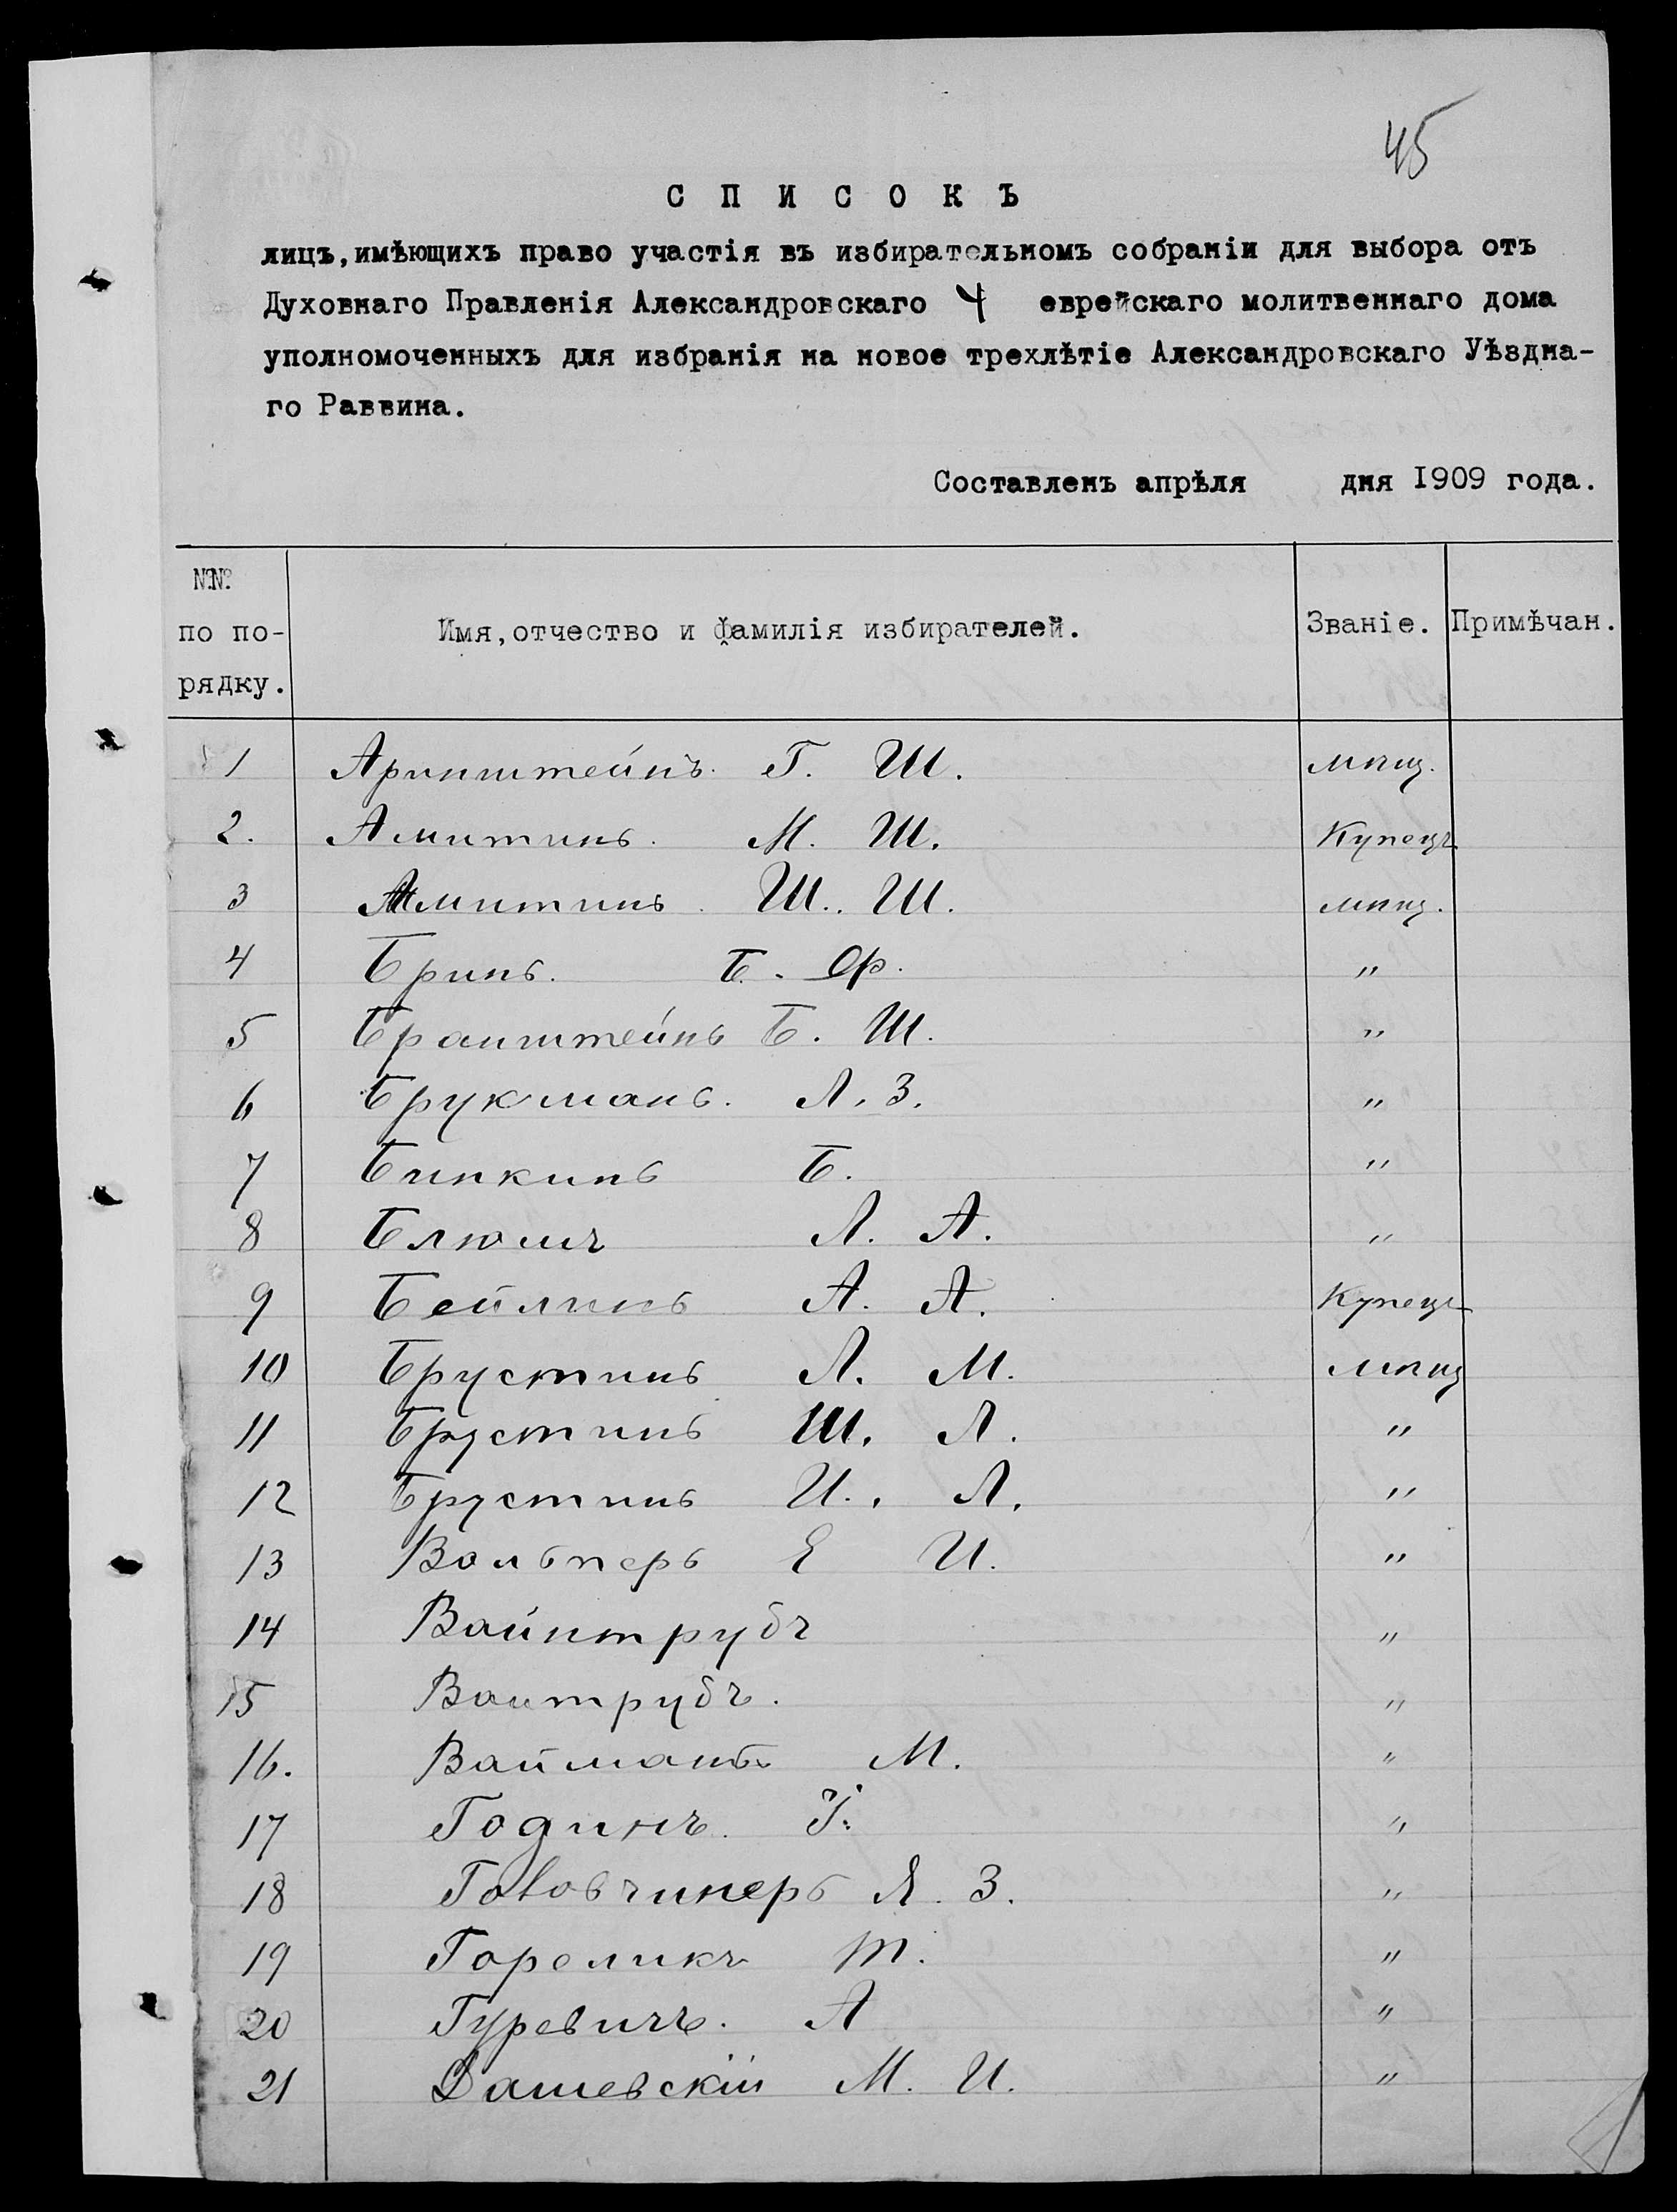 45
СПИСОКЪ
лицъ,имѣющихъ право участія въ избирательномъ собраніи для выбора отъ
Духовнаго Правленія Александровскаго 4 еврейскаго молитвеннаго дома
уполномоченныхъ для избранія на новое трехлѣтіе Александровскаго Уѣздна-
го Раввина.
Составленъ апрѣля дня 1909 года.
№№ по по-рядку. Имя,отчество и фамилія избирателей. Званіе. Примѣчан.
1 Аринштейнъ. Г. Ш. мѣщ.
2. Амитинъ. М. Ш. Купецъ
3 Амитинъ. Ш. Ш. мѣщ.
4 Бринъ. Б. Ф. "
5 Бранштейнъ Б. Ш. "
6 Брукманъ. Л. З. "
7 Бинкинъ Б. "
8 Блюмъ Л. А. "
9 Бейлинъ А. А. Купецъ
10 Брустинъ Л. М. мѣщ
11 Брустинъ Ш. Л. "
12 Брустинъ И. Л. "
13 Вольперъ Е И. "
14 Вайнтрубъ "
15 Ваитрубъ. "
16. Вайманъ М. "
17 Годинъ. І. "
18 Говчинеръ Я. З. "
19 Гореликъ М. "
20 Гуревичъ. А "
21 Дашевскій М. И. "